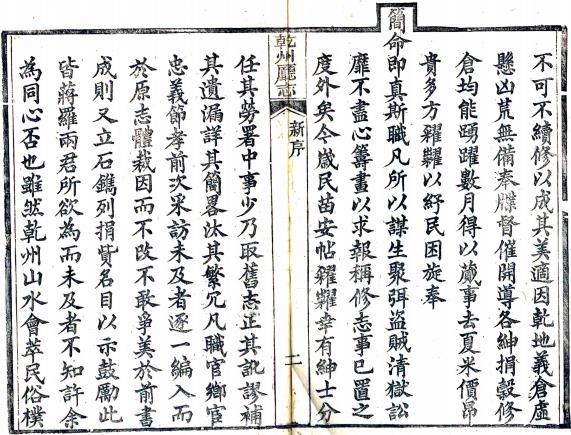 不可不續修以成其美適因乾地義倉虛
懸凶荒無備奉牒督催開導各紳捐穀修
倉均能踴躍數月得以蕆事去夏米價昂
貴多方糶糶以紓民困旋奉
簡命即真斯職凡所以謀生聚弭盜賊清獄訟
靡不盡心籌畫以求報稱修志事已置之
度外矣今歲民苗安帖糶糶幸有紳士分
乾州廳志
新序
二
任其勞署中事少乃取舊志正其訛謬補
其遺漏詳其簡畧汰其繁冗凡職官鄉宦
忠義節孝前次采訪未及者逐一編入而
於原志體裁因而不改不敢爭美於前書
成則又立石鐫列捐貲名目以示鼓勵此
皆蔣羅兩君所欲為而未及者不知許余
為同心否也雖然乾州山水會萃民俗樸